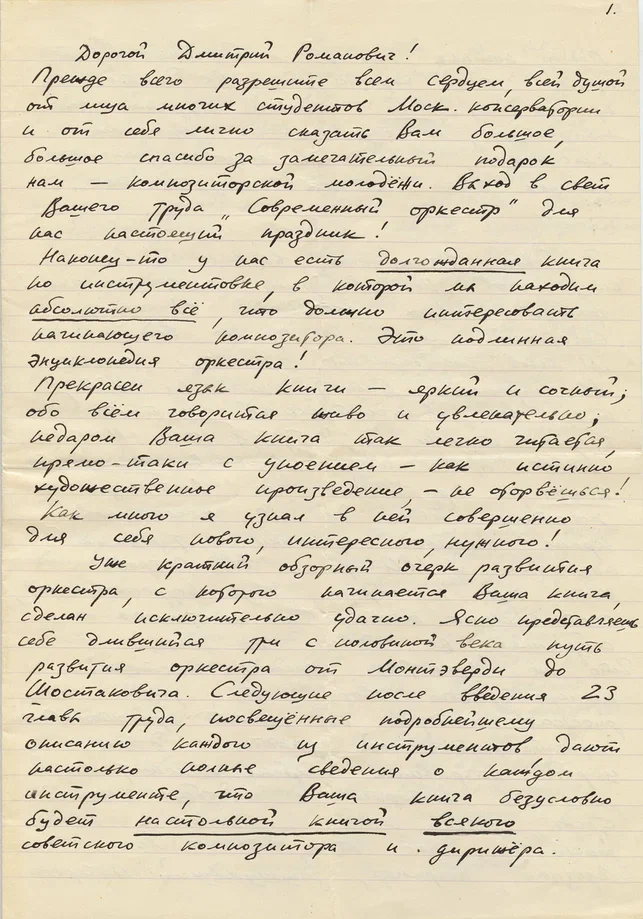 1.
Дорогой Дмитрий Романович!
Прежде всего разрешите всем сердцем, всей душой
от лица многих студентов Моск. консерватории
и от себя лично сказать Вам большое,
большое спасибо за замечательный подарок
нам — композиторской молодёжи. Выход в свет
Вашего труда „Современный оркестр" для
нас настоящий праздник!
Наконец-то у нас есть долгожданная книга
по инструментовке, в которой мы находим
абсолютно всё, что должно интересовать
начинающего композитора. Это подлинная
энциклопедия оркестра!
Прекрасен язык книги — яркий и сочный;
обо всём говорится живо и увлекательно;
недаром Ваша книга так легко читается,
прямо-таки с упоением — как истинно
художественное произведение, — не оторвёшься!
Как много я узнал в ней совершенно
для себя нового, интересного, нужного!
Уже краткий обзорный очерк развития
оркестра, с которого начинается Ваша книга,
сделан исключительно удачно. Ясно представляешь
себе длившийся три с половиной века путь
развития оркестра от Монтэверди до
Шостаковича. Следующие после введения 23
главы труда, посвещённые подробнейшему
описанию каждого из инструментов дают
настолько полные сведения о каждом
инструменте, что Ваша книга безусловно
будет настольной книгой всякого
советского композитора и дирижёра.